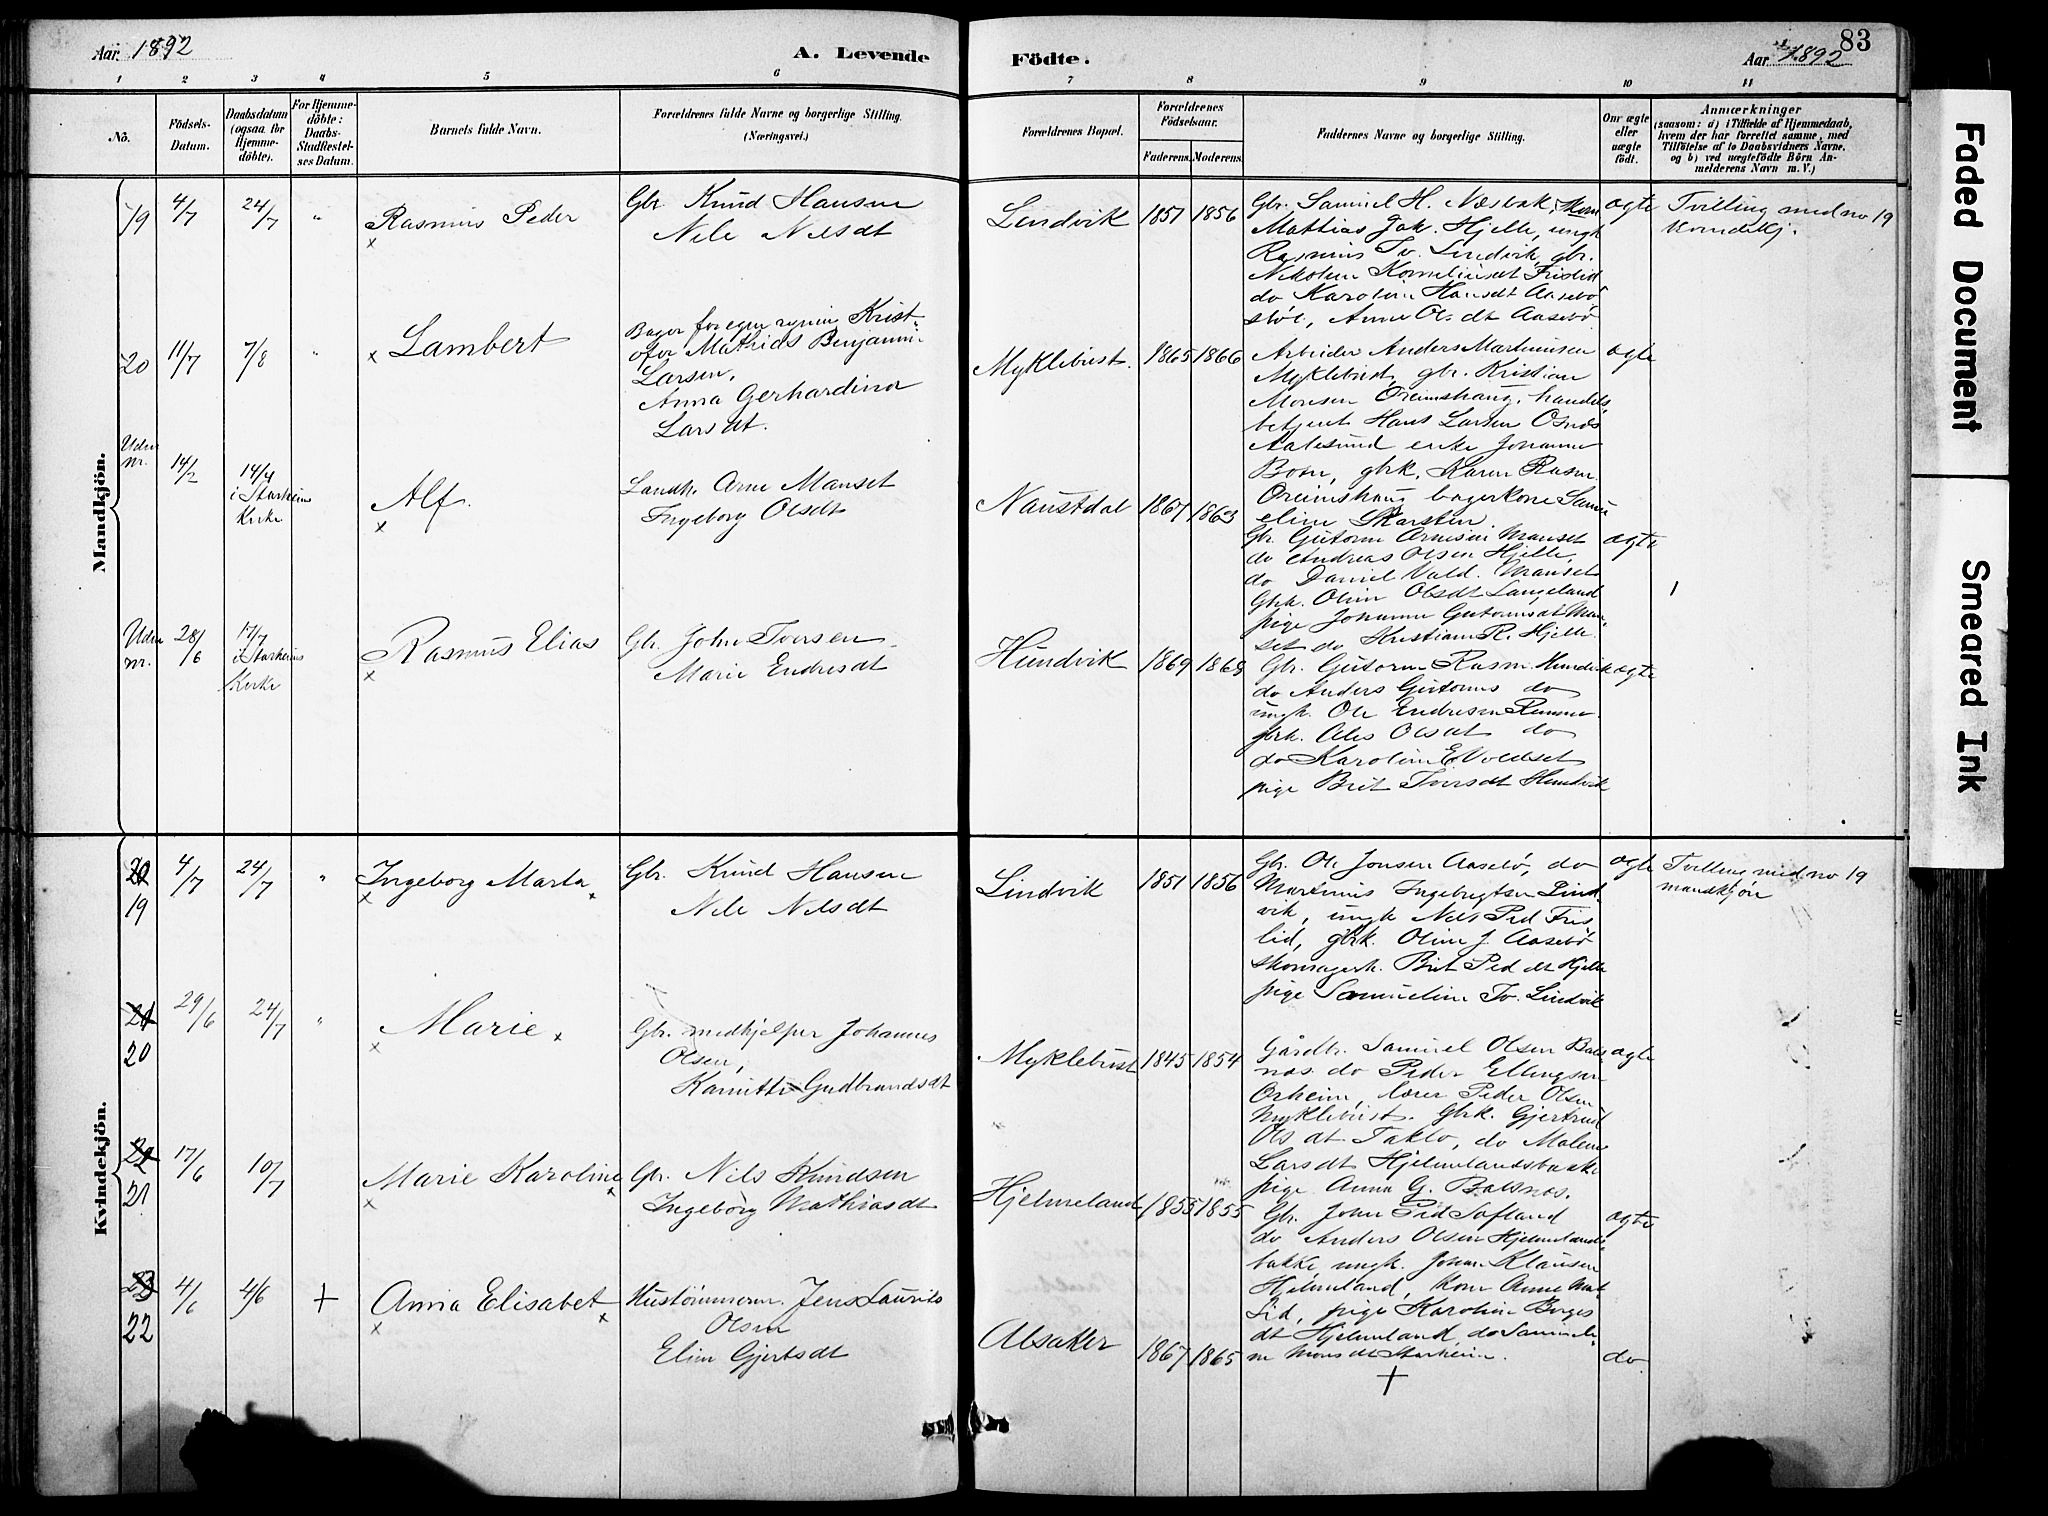 Aar 1892
A. Levende
Födte.
Aar 1892
83
1 2 3 4 5 6 7 8 9 10 11
No.
Födsels-
Datum.
Daabsdatum
(ogsaa for
Hjemme-
döbte).
For Hjemme-
döbte:
Daabs-
Stadfæstel-
ses Datum.
Barnets fulde Navn.
Forældrenes fulde Navne og borgerlige Stilling.
(Næringsvei.)
Forældrenes Bopæl.
Forældrenes
Födselsaar.
Faderens.
Moderens.
Faddernes Navne og borgerlige Stilling.
Om ægte
eller
uægte
födt.
Anmærkninger
(saasom: a) i Tilfælde af Hjemmedaab,
hvem der har forrettet samme, med
Tilföielse af to Daabsvidners Navne,
og b) ved uægtefödte Börn An-
melderens Navn m. V.)
Mandkjön.
19 4/7 24/7 " Rasmus Peder
Gbr. Knud Hansen
Nele Nilsdt
Lindvik 1851 1856
Gbr. Samuel H. Næsbak,
Mattias Jak. Hjelle, ungk
Rasmus Iv. Lindvik, gbr.
Frislid
do Karoline Hansdt Aasebö
støl, Anne Ols dt Aasebö
ægte
Tvilling med no 19
kvindekj.
20 11/7 7/8 " Lambert
Bager for egen regning Krist-
ofer Mathias Benjamin
Larsen,
Anna Gerhardina
Larsdt.
Myklebust. 1865 1866
Arbeider Anders Martinusen
Myklebust, gbr. Kristian
Monsen Oreimshaug, handels
betjent Hans Larsen Osnes
Aalesund enke Johanne
Boen, gbrk. Karen Rasm.
Oreimshaug bagerkone Samu
eline Skarsten.
ægte
Uden
nr. 14/2 14/4
i Starheims
Kirke
Alf.
Landh. Arne Manset
Ingeborg Olsdt
Naustdal 1867 1863
Gbr. Guttorm Arnesen Manset
do Andreas Olsen Hjelle,
do Daniel Vald. Manset
Gbrk. Oline Olsdt Langeland
pige Johanne Guttormsdt Man
set do Kristiane R. Hjelle
ægte
Uden
nr. 28/6 17/7
i Starheims
Kirke
Rasmus Elias
Gbr. John Iversen
Marie Endresdt
Hundvik 1869 1869
Gbr. Guttorm Rasm. Hundvik
do Anders Guttorms do
ungk. Ole Endresen
gbrk. Olsdt do
do Karoline E Voldset
pige Brit Iversdt Hundvik
ægte
Kvindekjön.
20
19 4/7 24/7 " Ingeborg Marta
Gbr. Knud Hansen
Nele Nilsdt
Lindvik 1851 1856
Gbr. Ole Jonsen Aasebö, do
Martinus Ingebrigtsen Lind-
vik, ungk Nils Ped Fris
lid, gbrk. Oline J. Aasebö
skomagerk. Brit Ped dt Hjelle
pige Samueline Iv. Lindvik
ægte
Tvilling med no 19
mandkjön
21
20 29/6 24/7 " Marie
Gbr. medhjelper Johannes
Olsen,
Gudbrandsdt
Myklebust 1845 1854
Gårdbr. Samuel Olsen Bals
nes. do Peder Ellingsen
Orheim, lærer Peder Olsen
Myklebust. Gbrk. Gjertrud
Ols dt Taklo, do Malene
Larsdt Hjelmelandsbakke
pige Anna G. Balsnes.
ægte
22
21 17/6 10/7 Marie Karoline
Gbr. Nils Knudsen
Ingeborg Mathiasdt
Hjelmeland 1855 1855
Gbr. John Ped Sofland
do Anders Olsen Hjelmelands
bakke ungk. Johan Klausen
Hjelmeland, kone Anne Mat
Lid, pige Karoline Börges
dt Hjelmeland, do Samueli
ne Mons dt Starheim.
ægte
23
22 4/6 4/6 + Anna Elisabet
Hustömmerm. Jens Laurits
Olsen
Eline Gjertsdt
Alsaker 1867 1865
+
do
Faded Document
Smeared Ink